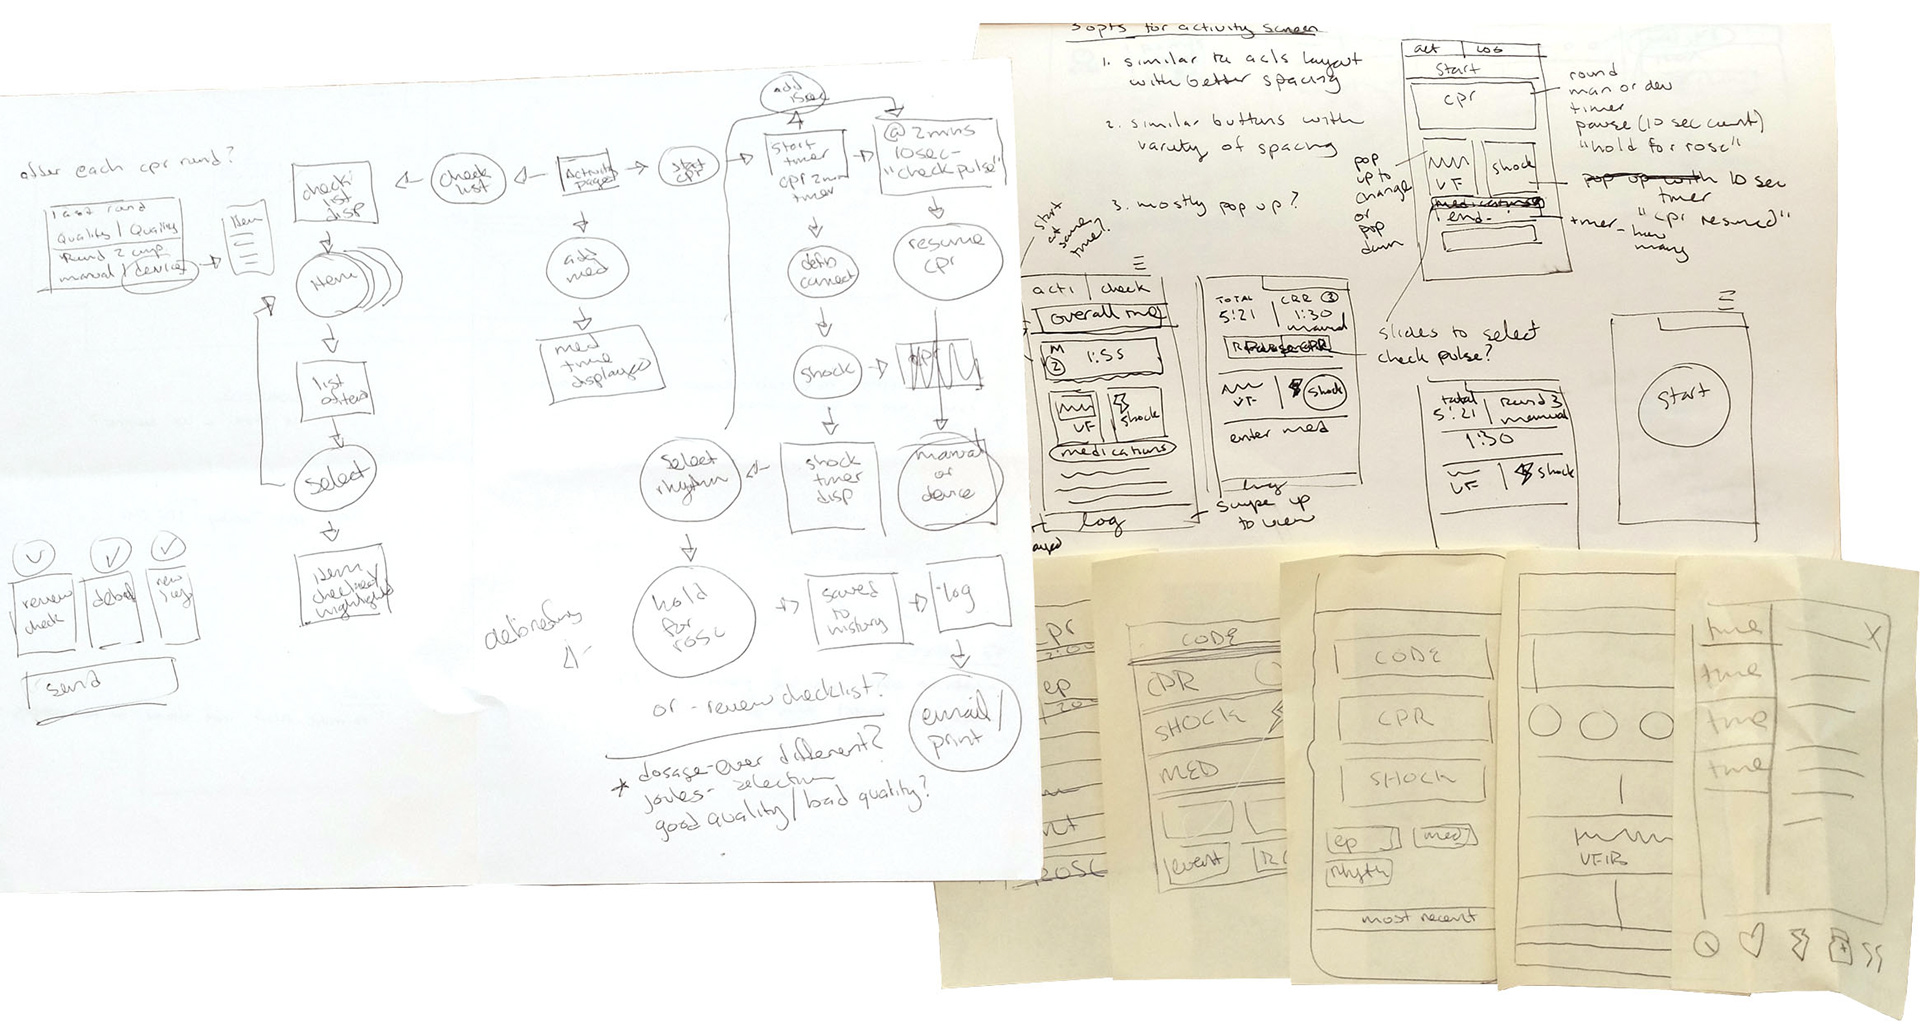 after each cpr round?
last round
Quality / Quality
Round 2 cmp
manual / device
Item
check
list
disp
check
list
Activity
page
start
cpr
add
start
timer
cpr 2 min
timer
@ 2 mins
10 sec-
"check pulse"
Item
add
med
defib
connect
resume
cpr
list
med
time
displayed
shock
select
select
rhythm
shock
timer
disp
manual
or
device
review
check
debrief
new
send
item
checked/
highlighted
debriefing
hold
for
rosc
saved
to
history
log
or - review checklist?
email/
print
* dosage-ever different?
joules- selection
good quality/bad quality?
3 opts for activity screen
1. similar to acls layout
with better spacing
2. similar buttons with
variety of spacing
3. mostly pop up?
start
at
same
time?
act
log
start
cpr
VF
shock
medications
end
round
man or dev
timer
pause (10 sec count)
"hold for rosc"
pop up with 10 sec
timer
timer - how
many
"cpr resumed"
pop
up to
change
or
pop
down
acti
check
overall time
M
2
1:55
VF
shock
medications
log
TOTAL
5:21
CPR 3
1:30
manual
Pause CPR
VF
shock
enter med
log
swipe up
to view
slides to select
check pulse?
total
5:21
Round 3
manual
1:30
VF
shock
start
cpr
2:00
ep
ROSC
CODE
CPR
SHOCK
MED
event
CODE
CPR
SHOCK
ep
med
rhyth
most recent
VFIB
time
time
time
time
X